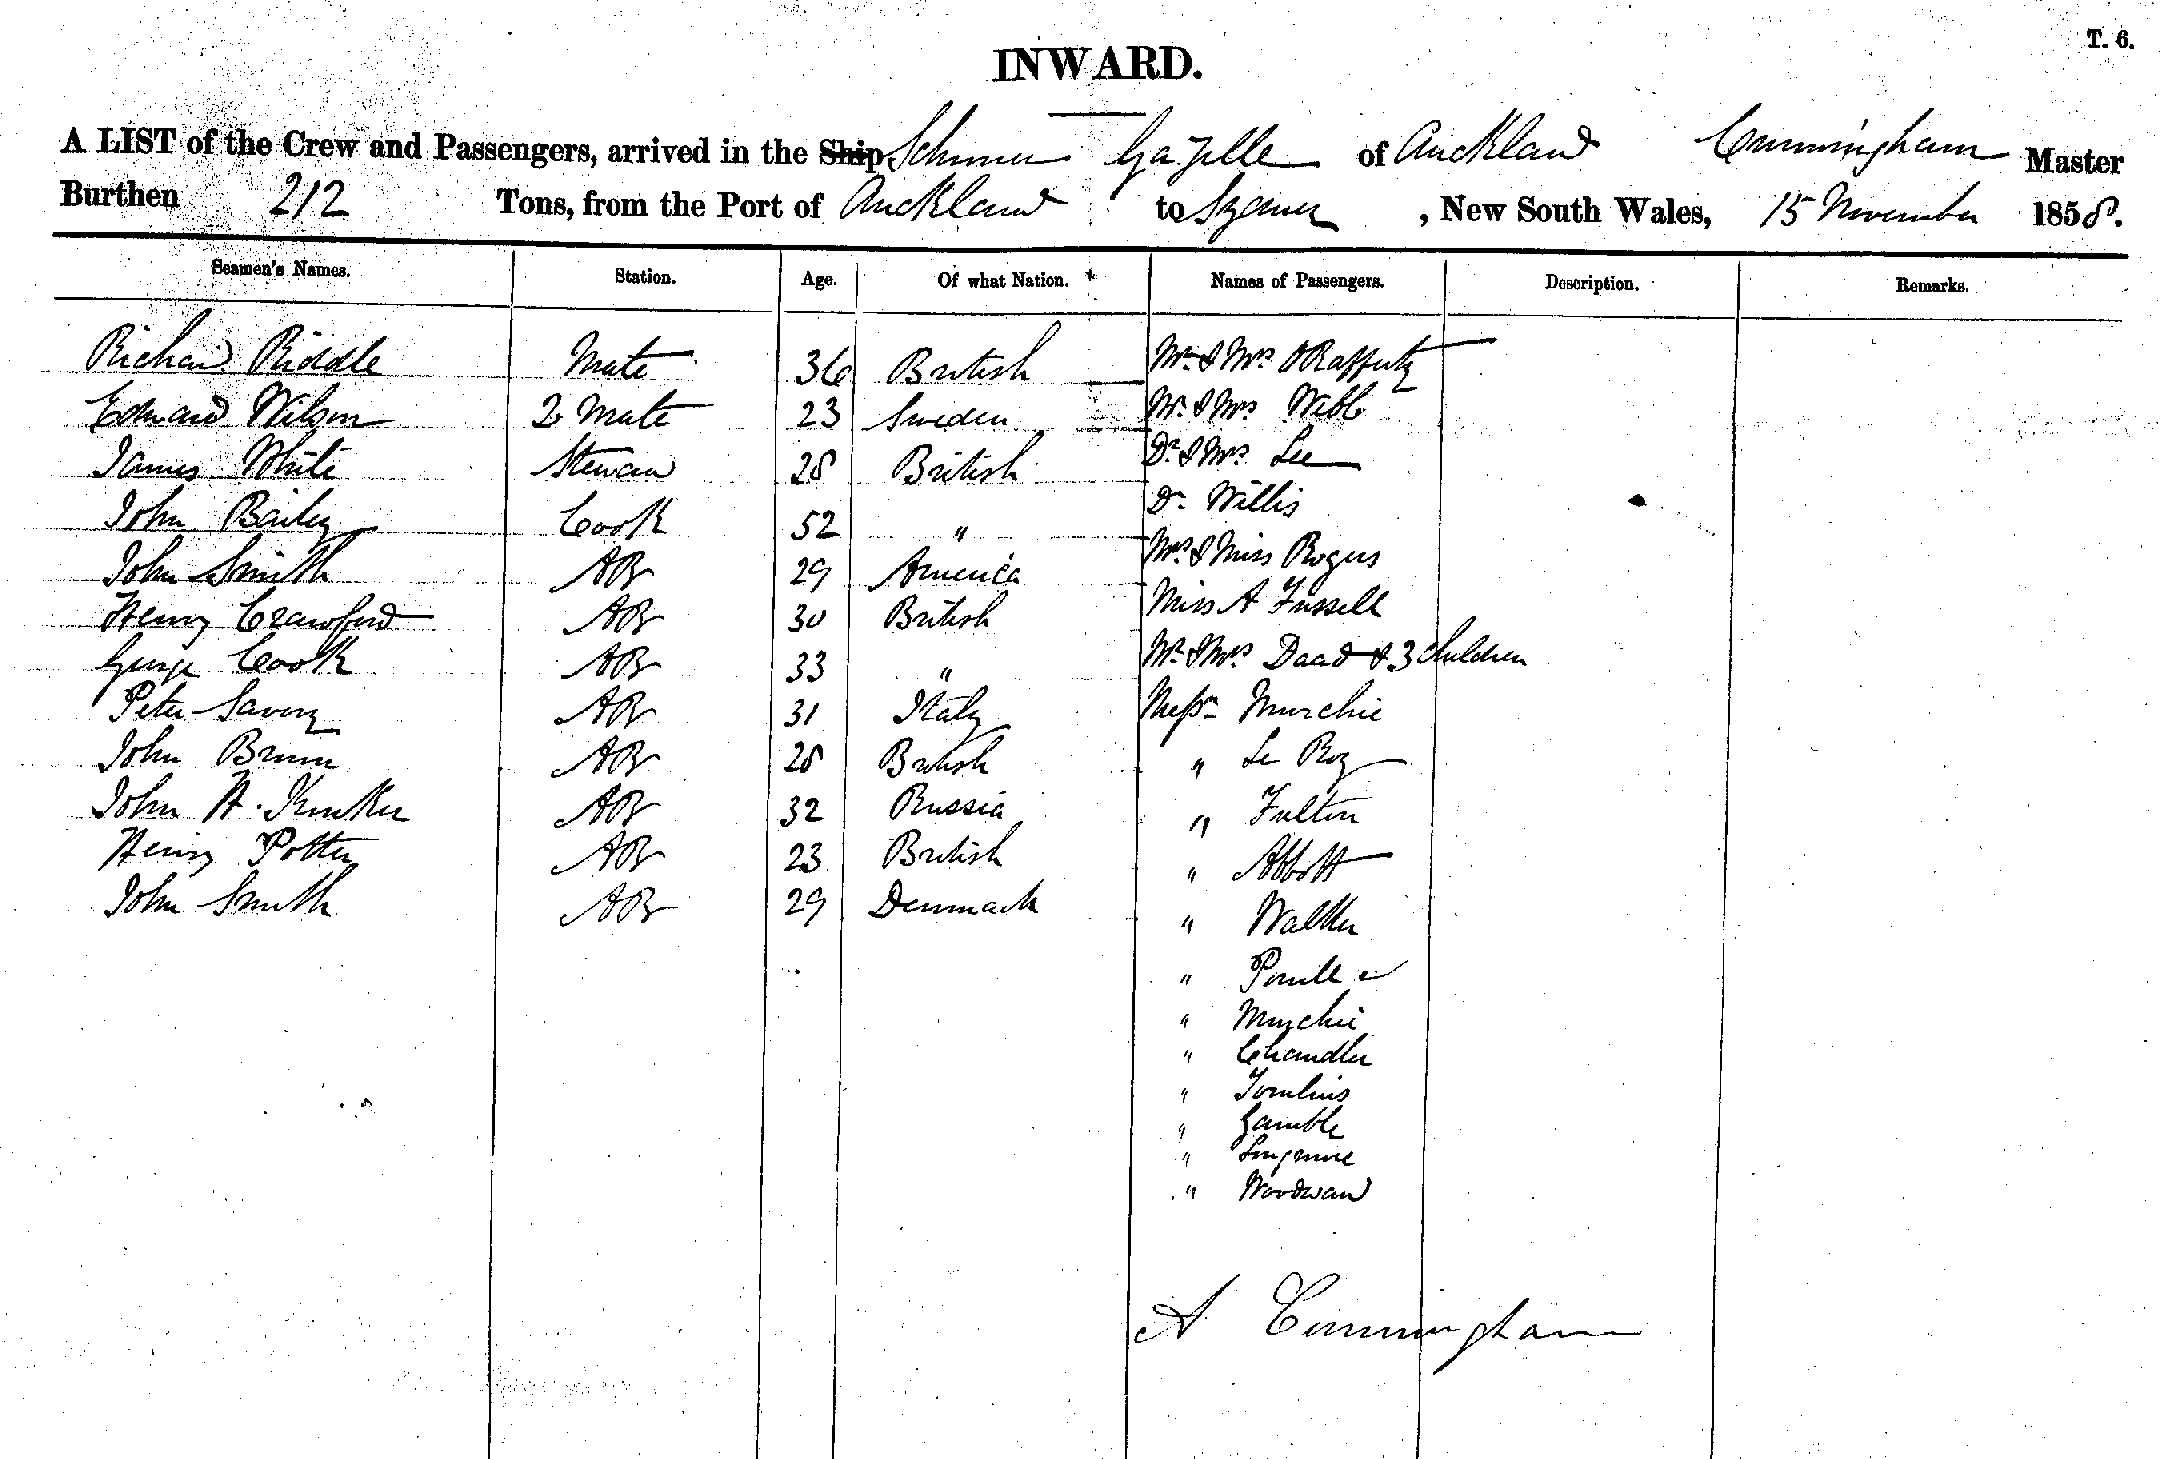 T. 6.
INWARD.
A LIST of the Crew and Passengers, arrived in the Ship Schooner Gazelle of Auckland Cunningham Master
Burthen 212 Tons, from the Port of Auckland to Sydney, New South Wales, 15 November 1858.
Seamen's Names. Station. Age. Of what Nation. Names of Passengers. Description. Remarks.
Richard Riddle Mate 36 British Mr & Mrs O'Rafferty
Edward Wilson 2 Mate 23 Sweden Mr & Mrs Webb
James White Steward 28 British Dr & Mrs Lee
John Bailey Cook 52 " Dr Willis
John Smith AB 29 America Mrs & Miss Rogers
Henry Crawford AB 30 British Miss A Fussell
George Cook AB 33 " Mr & Mrs Daad & 3 children
Peter Savory AB 31 Italy Messrs Murchie
John Brown AB 28 British " Le Roy
John H. AB 32 Russia " Fulton
Henry Potter AB 23 British " Abbott
John Smith AB 29 Denmark " Walker
"
" Murchie
" Chandler
" Tomlins
" Gamble
" Longmore
" Woodward
A Cunningham